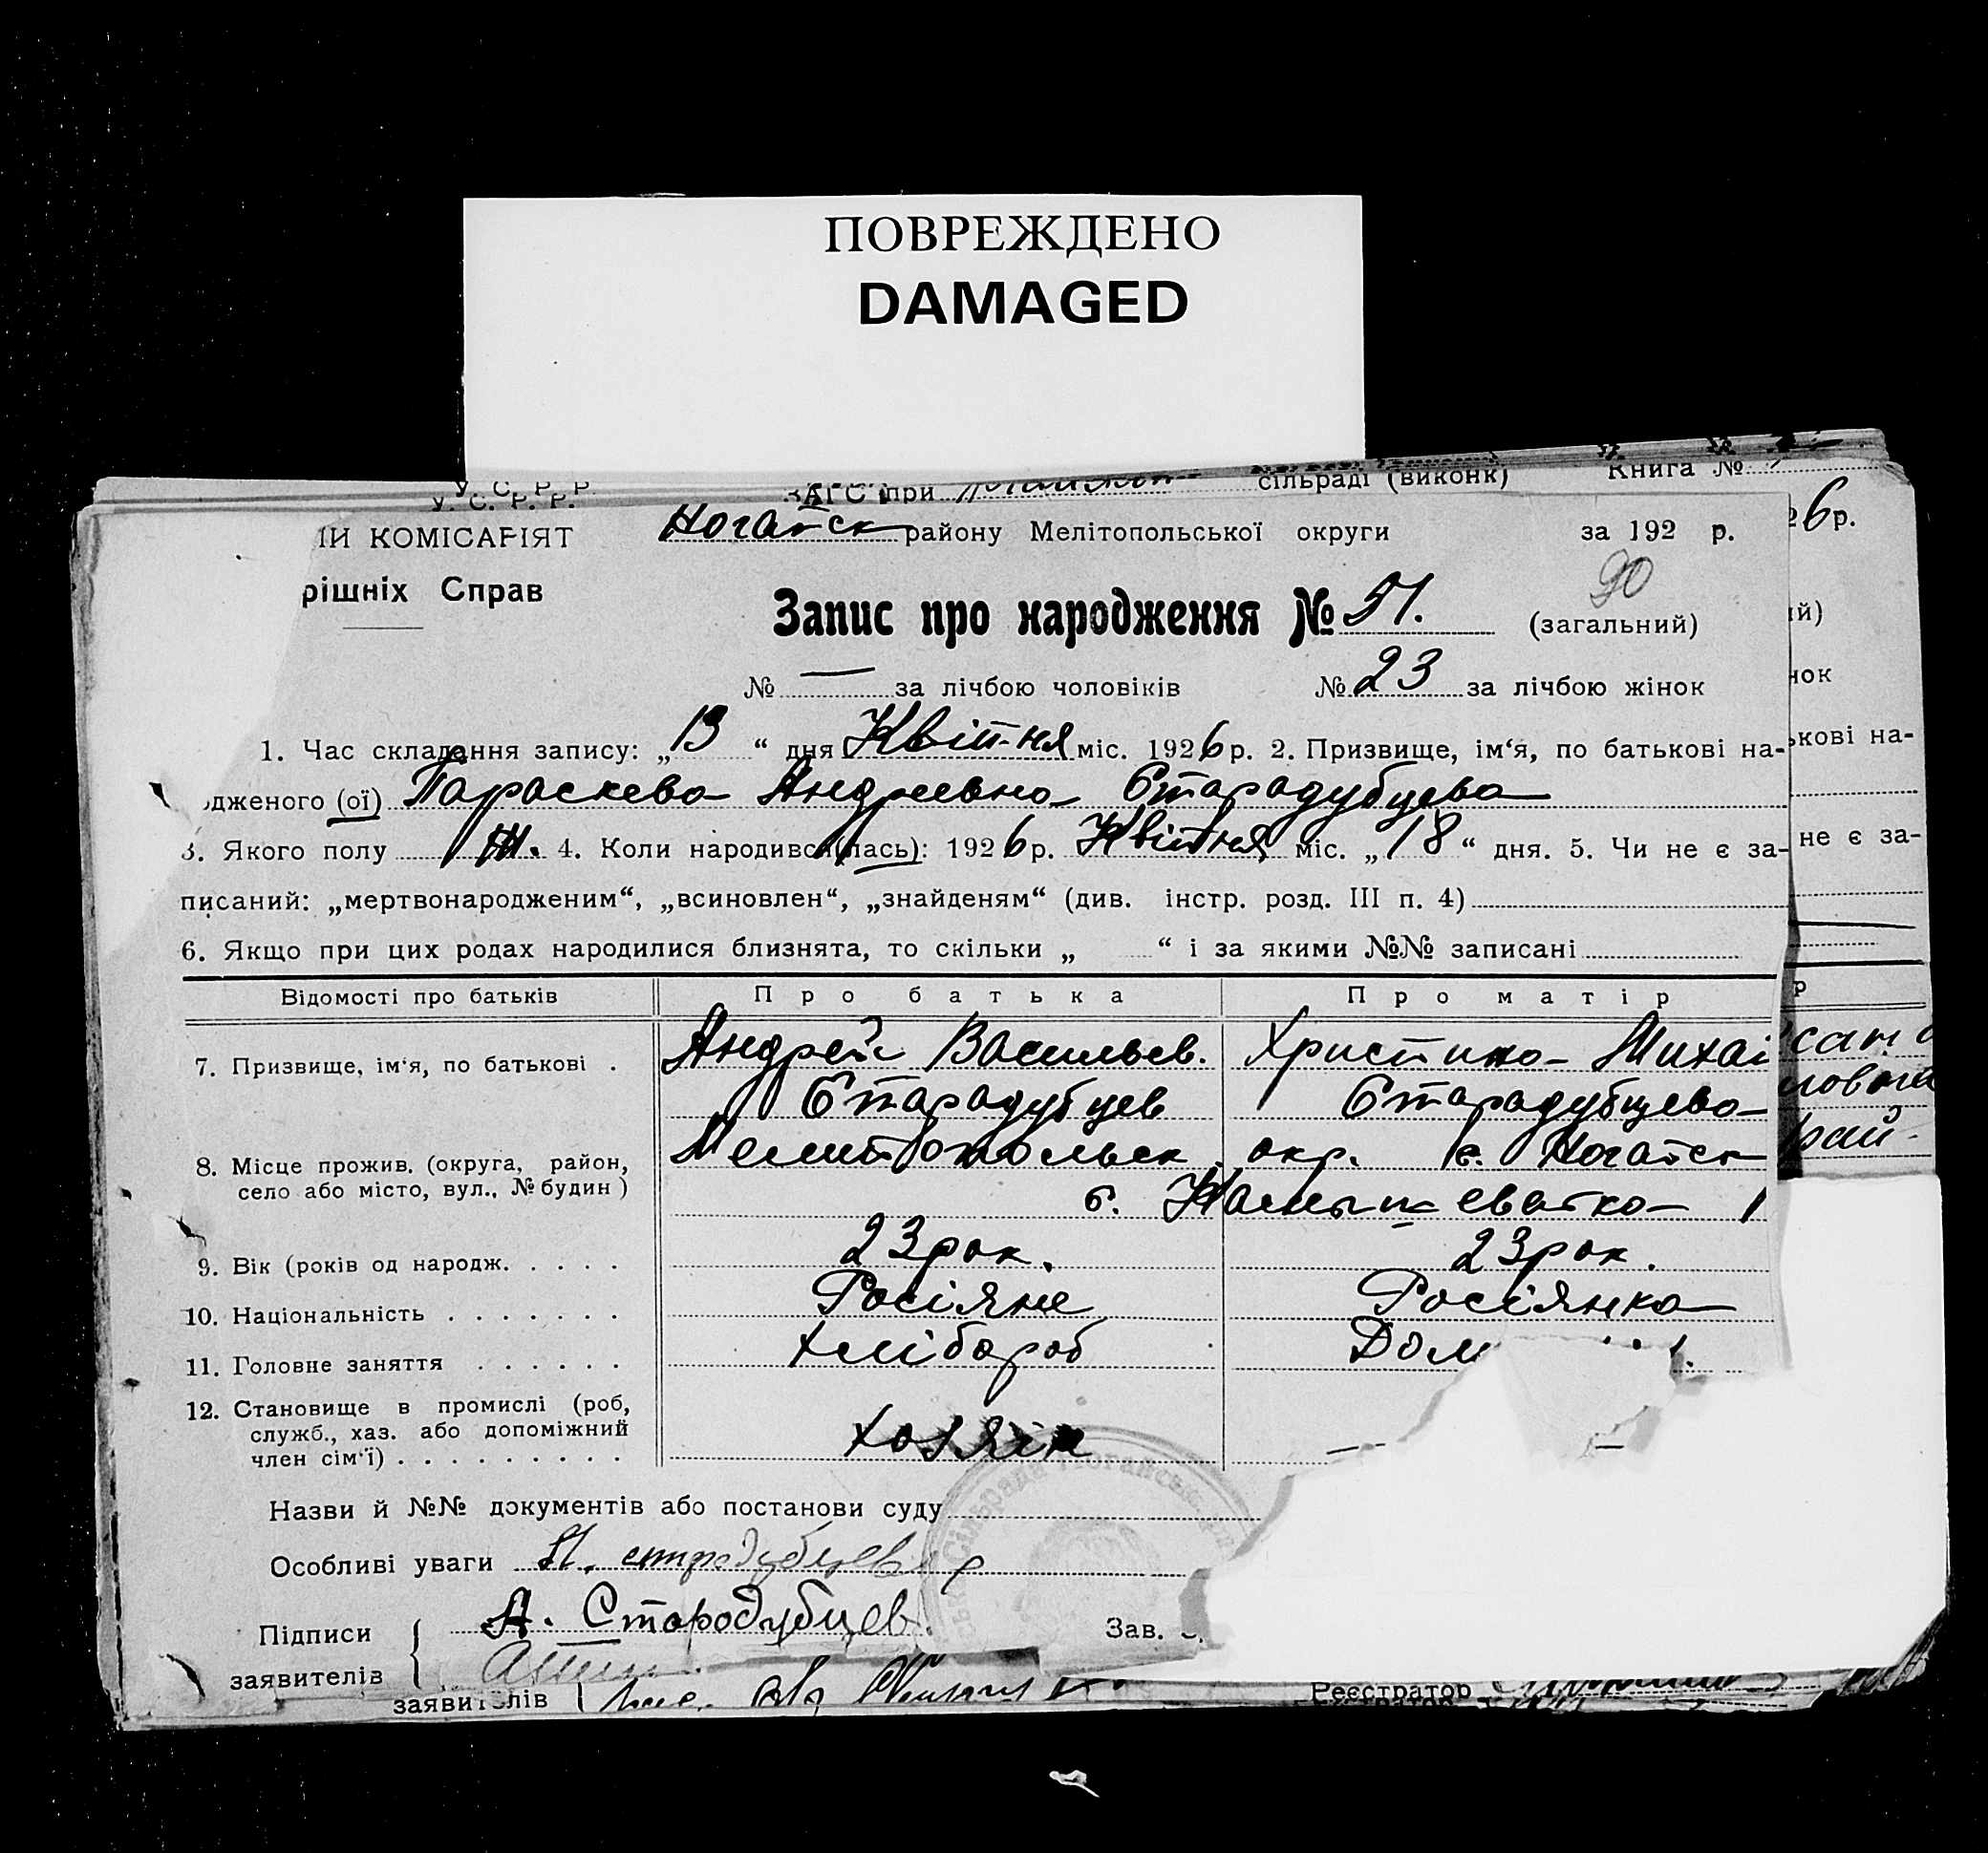 ПОВРЕЖДЕНО
DAMAGED
У. С. Р. Р.
ЗАГС при сільраді (виконк) Книга №
У. С. Р. Р.
ИЙ КОМІСАРІЯТ Ногайск району Мелітопольської округи за 192 р. 26р.
рішніх Справ
90
Запис про народження № 51. (загальний) ий)
№ — за лічбою чоловіків № 23 за лічбою жінок нок
1. Час складання запису: „13“ дня Квітня міс. 1926 р. 2. Призвище, ім‘я, по батькові на- ькові на-
дженого (ої) Параскева Андреевна Старадубцева
3. Якого полу Ж. 4. Коли народився (лась): 1926 р. Квітня міс. „18“ дня. 5. Чи не є за- не є за-
писаний: „мертвонародженим“, „всиновлен“, „знайденям“ (див. інстр. розд. III п. 4)
6. Якщо при цих родах народилися близнята, то скільки „ “ і за якими №№ записані
Відомості про батьків Про батька Про матір р
7. Призвище, ім‘я, по батькові . Андрей Васильев. Христина Михаі
Старадубцев Старадубцева
8. Місце прожив. (округа, район, Мелитопольськ окр. с. Ногайск рай-
село або місто, вул., № будин) с. Камышеватка
9. Вік (років од народж. . . . . 23 рок. 23 рок.
10. Національність . . . . . . . Росіяне Росіянка
11. Головне заняття . . . . . . Хлібороб Дом
12. Становище в промислі (роб,
служб., хаз. або допоміжний
член сім‘ї) . . . . . . . . . Хозяін —
Назви й №№ документів або постанови суду
Особливі уваги
Підписи А. Стародубцев Зав.
заявителів
заявителів Реєстратор